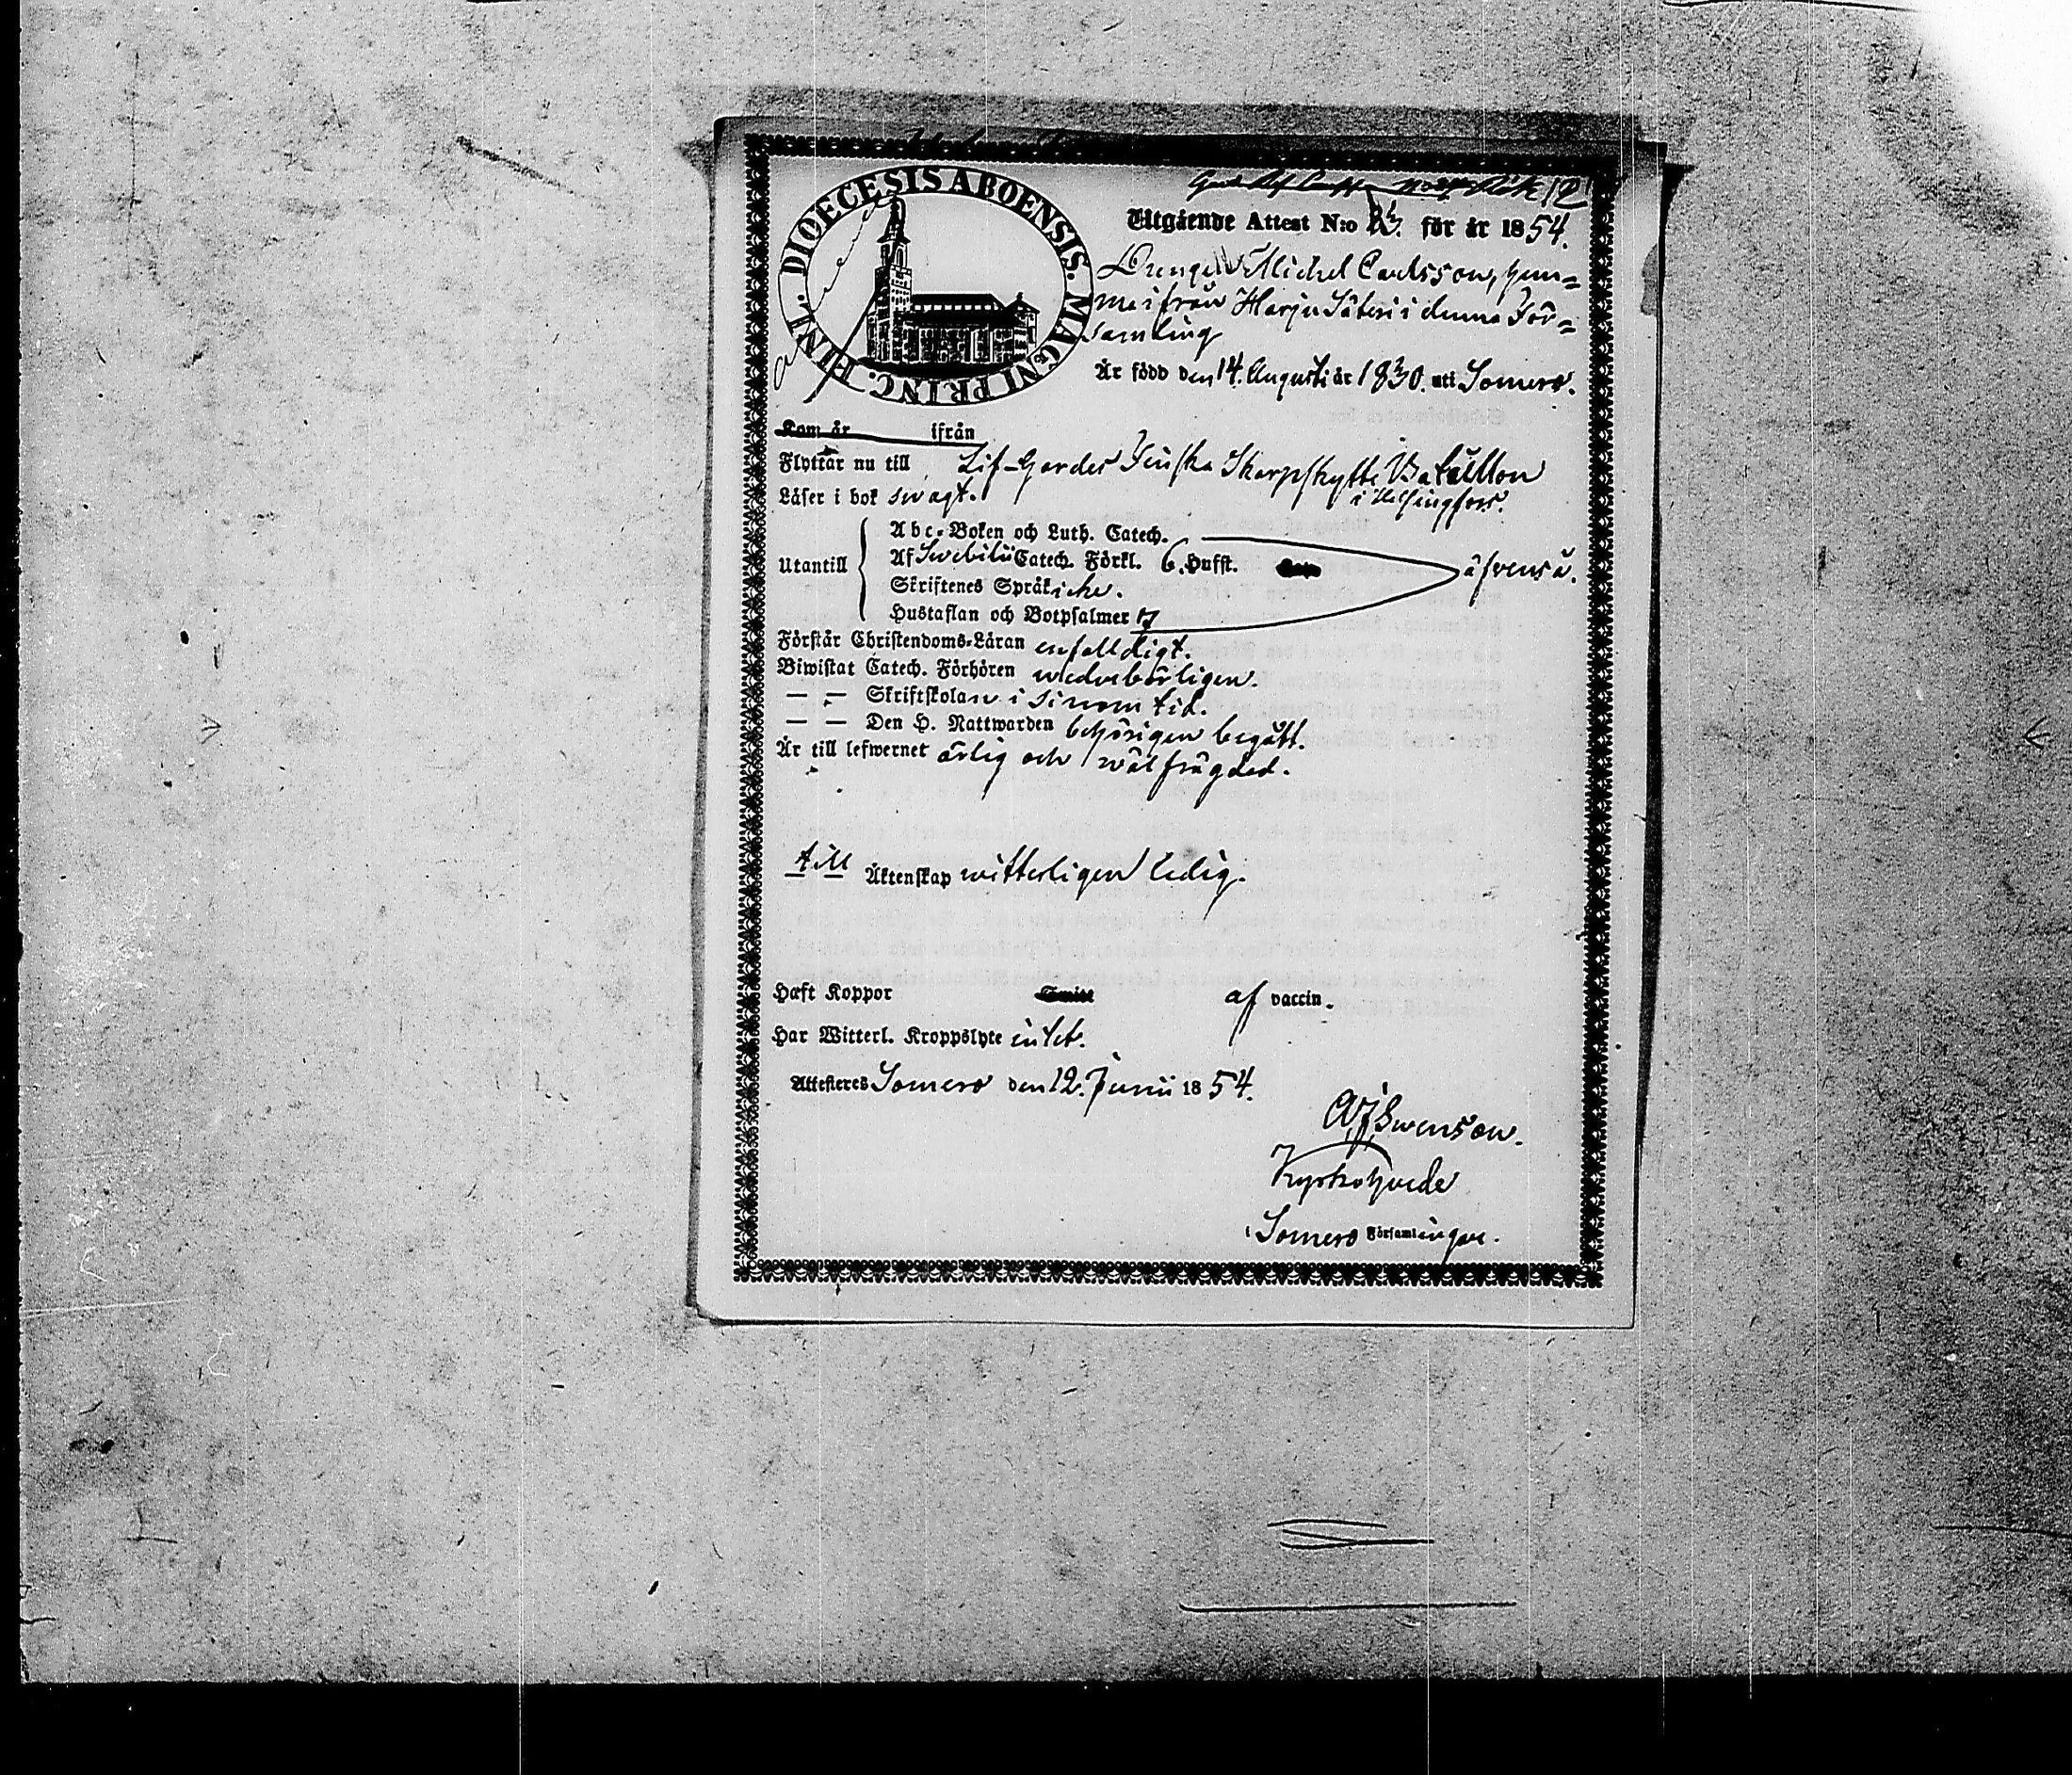 DIOECESIS ABOENSIS. MAGNI PRINC. FINL.
Utgående Attest N:o för år 1854.
Drengen Michel Carlsson, hem=
ma ifrån Harju Säteri i denna För=
samling
Är född den 14. Augusti år 1830. uti Somero.
Kom år ifrån
Flyttar nu till Lif-Gardes Finska Skarpskytte Bataillon
i Helsingfors.
Läser i bok swagt.
Utantill
Abc-Boken och Luth. Catech.
Af Swebilii Catech. Förkl. 6. Hufst.
äfvenså.
Skriftenes Språk icke.
Hustaflan och Botpsalmer
Förstår Christendoms-Läran enfalldigt.
Biwistat Catech. Förhören wederbörligen.
— — Skriftskolan i sinom tid.
— — Den H. Nattwarden behörigen begått.
Är till lefwernet ärlig och wälfrägdad.
till Äktenskap witterligen ledig.
Haft Koppor af vaccin.
Har Witterl. Kroppslyte intet.
Attesteres Somero den 12. Junii 1854.
A.J. Swenson.
Kyrkoherde
i Somero Församlingar.